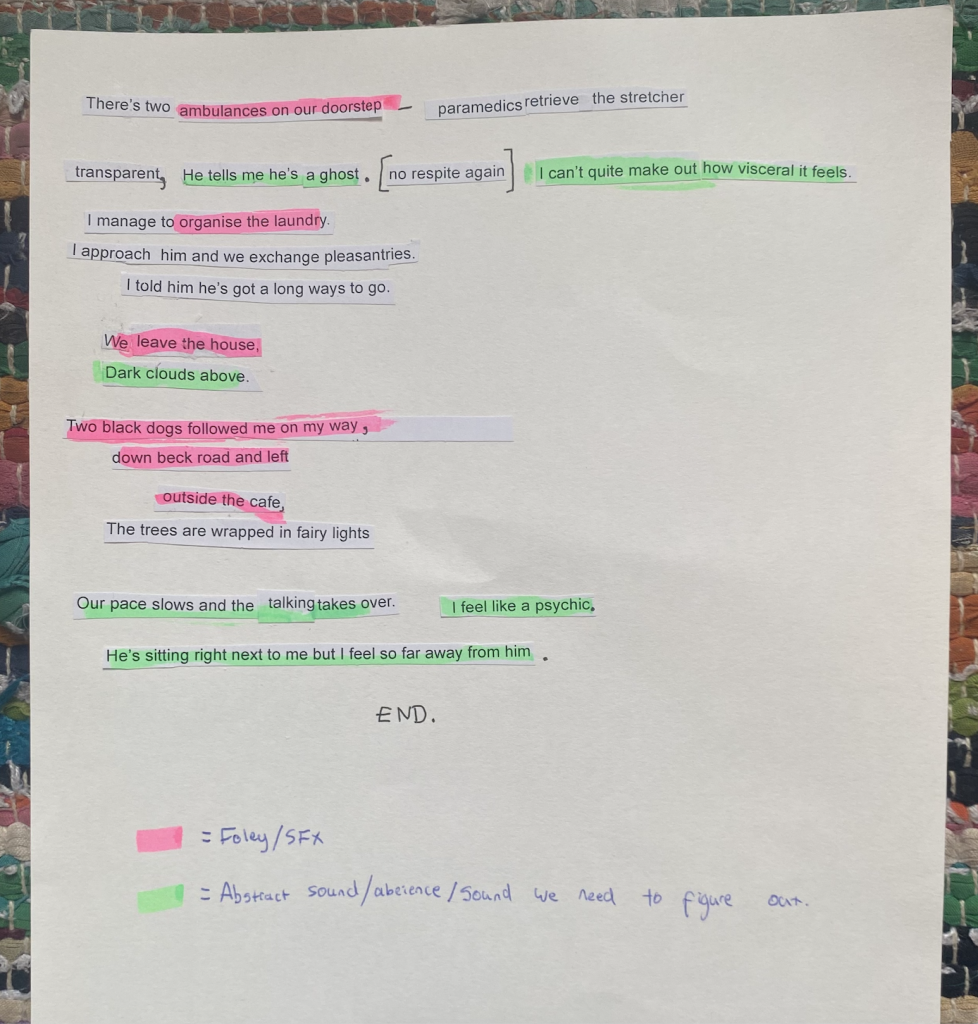 There's two ambulances on our doorstep – paramedics retrieve the stretcher
transparent, He tells me he's a ghost. [no respite again] I can't quite make out how visceral it feels.
I manage to organise the laundry.
I approach him and we exchange pleasantries.
I told him he's got a long ways to go.
We leave the house,
Dark clouds above.
Two black dogs followed me on my way,
down beck road and left
outside the cafe,
The trees are wrapped in fairy lights
Our pace slows and the talking takes over. I feel like a psychic.
He's sitting right next to me but I feel so far away from him.
END.
= Foley/SFX
= Abstract sound/abeience/Sound we need to figure out.